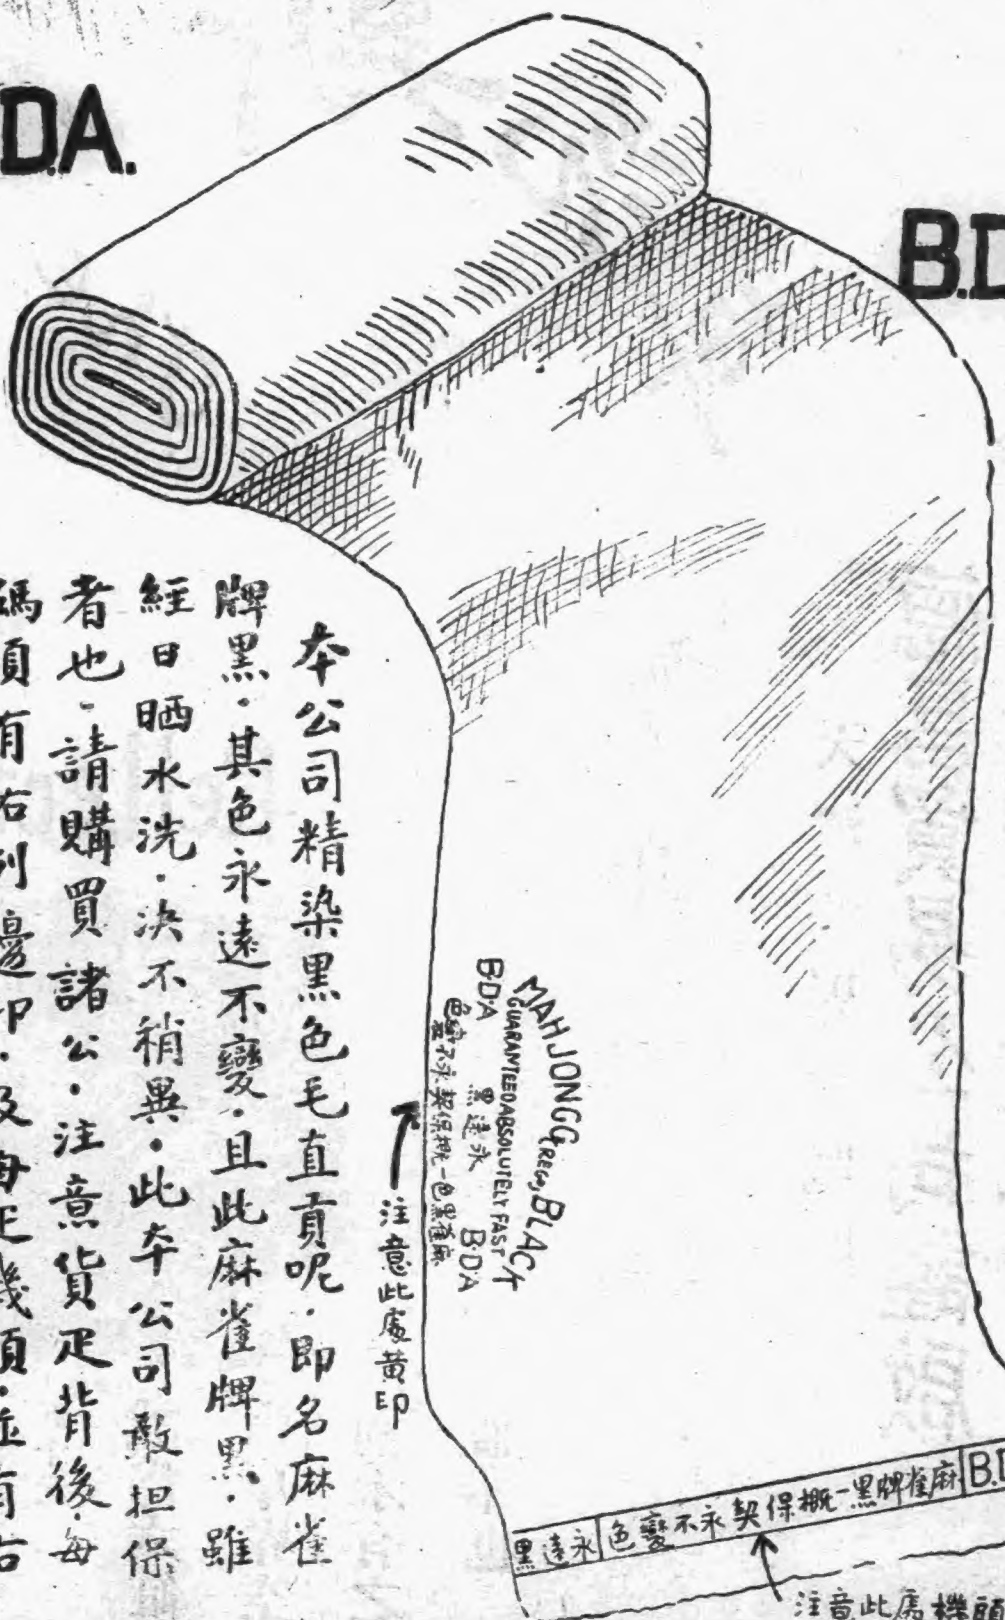 D.A.
B.D
本公司精染黑色毛直貢呢．即名麻雀
牌黑．其色永遠不變．且此麻雀牌黑．雖
經日晒水洗．决不稍異．此本公司敢担保
者也．請購買諸公．注意貨疋背後．每
碼頭有右列邊印．及每疋機頭．並有右
MAH JONGG (REGD) BLACK
GUARANTEED ABSOLUTELY FAST
B·D·A 黑遠永 B·D·A
色變不永契保概一色黑雀麻
注意此處黄印
黑遠永 色變不永契保概一黑牌雀麻 B.D
注意此處機頭